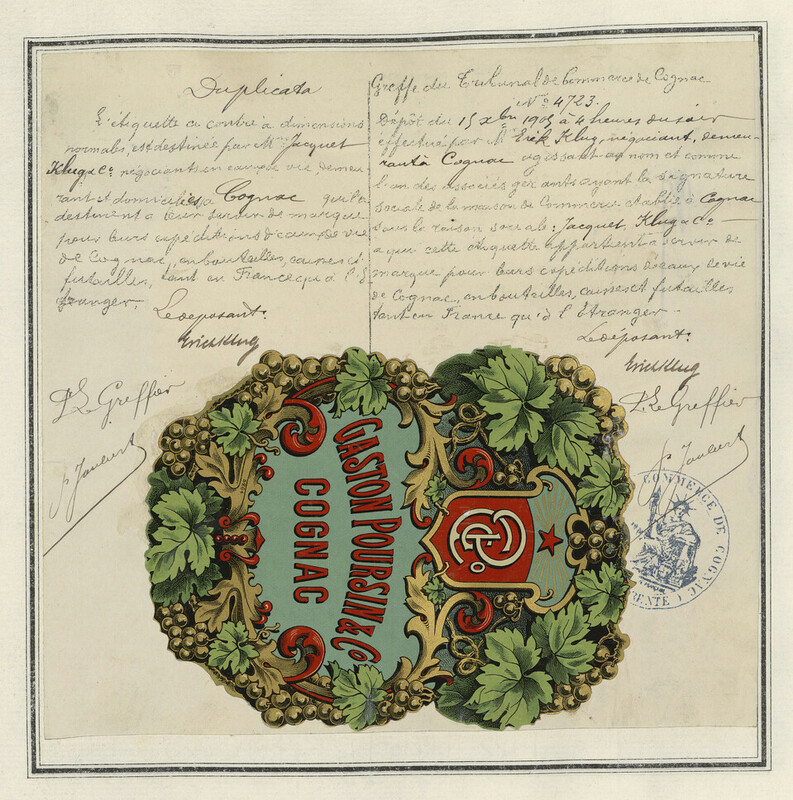 Duplicata
L'étiquette ci contre à dimensions
normales, est destinée par Mrs Jacquet
Klug & Co négociants en eaux de vie demeu
rant et domiciliés à Cognac qu'ils
destinent à leur servir de marque
pour leurs expéditions d'eaux de vie
de Cognac, en bouteilles, caisses et
futailles, tant en France qu'à l'É-
tranger.
Le déposant:
Erich Klug
P. Le Greffier
P. Joubert
Greffe du Tribunal de Commerce de Cognac
No 4723.
Dépôt du 15 xbre 1905 à 4 heures du soir
effectué par Mr Erik Klug, négociant, demeu-
rant à Cognac agissant au nom et comme
l'un des associés gérants ayant la signature
sociale de la maison de Commerce établie à Cognac
sous la raison sociale: Jacquet, Klug & Co
à qui cette étiquette appartient à servir de
marque pour leurs expéditions d'eaux de vie
de Cognac, en bouteilles, caisses et futailles
tant en France qu'à l'Étranger.
Le déposant:
Erich Klug
P. Le Greffier
P. Joubert
GASTON POURSIN & Co
COGNAC
COMMERCE DE COGNAC